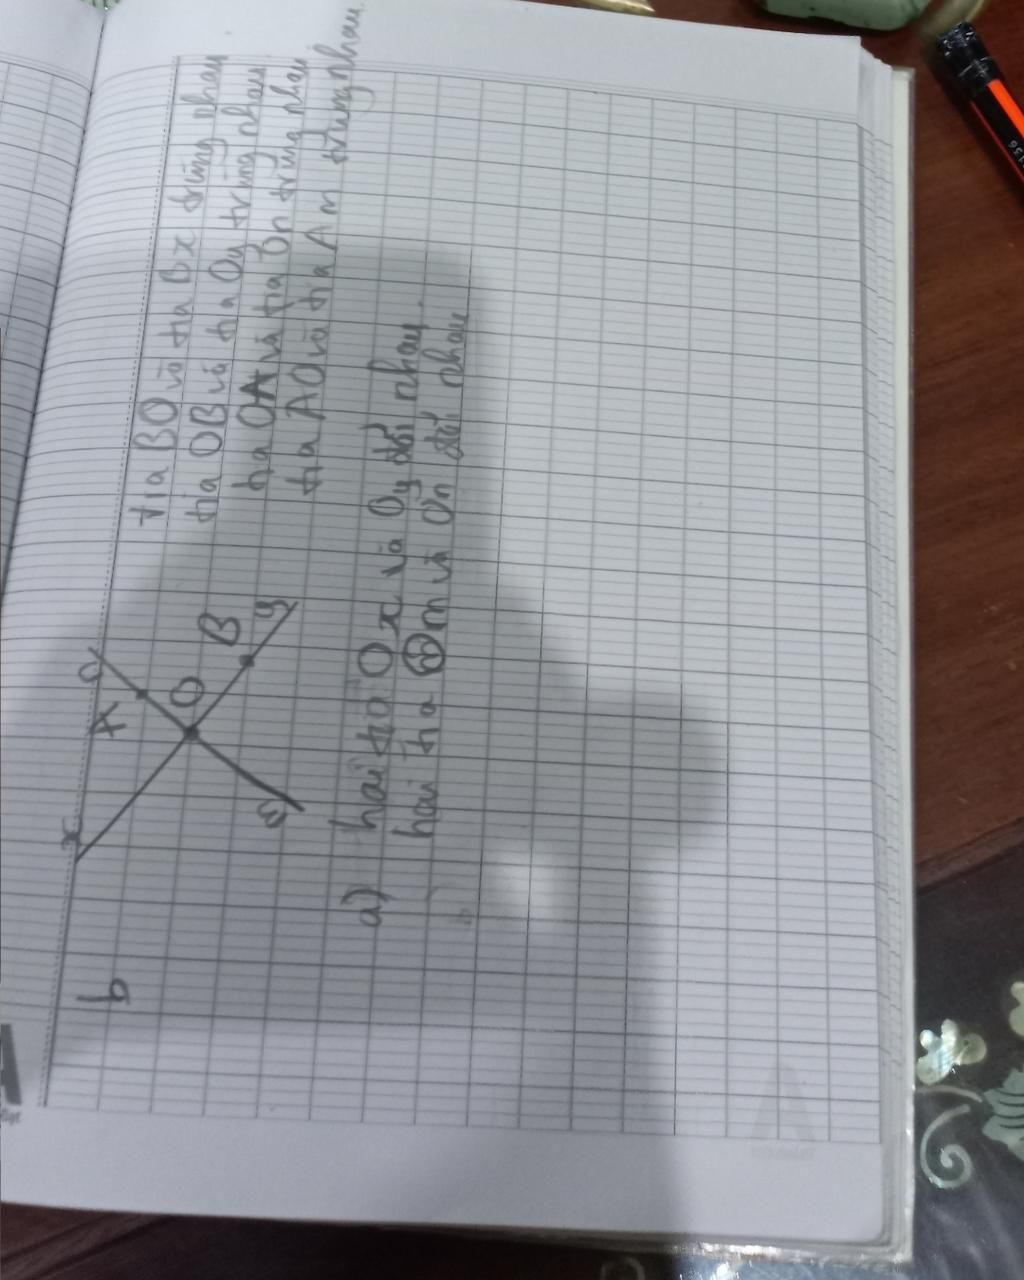 b
x
A
O
B
y
tia BO và tia Bx trùng nhau
tia OB và tia Oy trùng nhau
tia OA và tia On trùng nhau
tia AO và tia Am trùng nhau.
a) hai tia Ox và Oy đối nhau.
hai tia Om và On đối nhau